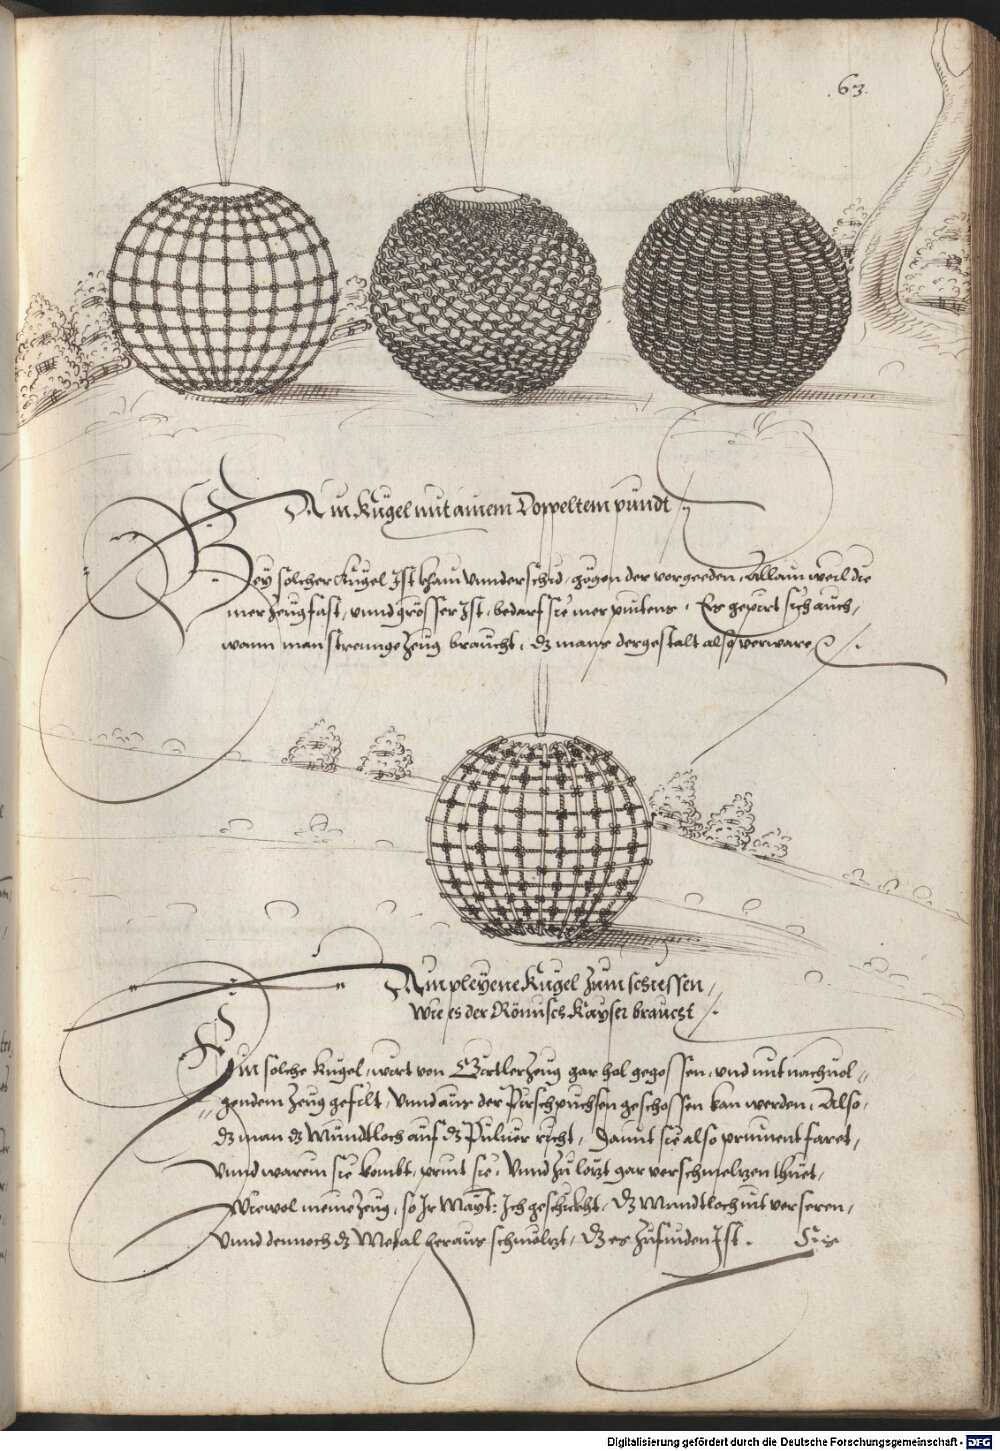 63.
Ain Kugel mit ainem Doppeltem pundt /.
Bey solcher Kugel Ist kham Vnnderschid, gögen der vorgeeden, Allain weil die
mer Zeug fast, vnnd grösser Ist, bedarf sie mer pintens. Es gepirt sich auch,
wann man strennge Zeug braucht, dz mans dergestalt also verware /.
Ain pleyene Kugel Zum schiessen,
wie es der Römisch Kayser braucht /.
Ein solche Kugel, wirt von Gürtler Zeug gar hol gegossen, vnd mit nachuol„
„gendem Zeug gefilt, Vnnd aus der Pirschpuchsen geschossen kan werden, Also,
dz man dz Mundtloch auf dz Puluer richt, Damit sie also prinnent faret,
Vnnd warein sie kombt, print sie, Vnnd Zu lötzt gar verschmeltzen thuet,
Wiewol meine Zeug, so Ir Mayt: Ich geschickht, Dz Mundtloch nit verseren,
Vnnd dennoch dz Metal heraus schmöltzt, Dz es Zufinden Ist.
Digitalisierung gefördert durch die Deutsche Forschungsgemeinschaft - DFG